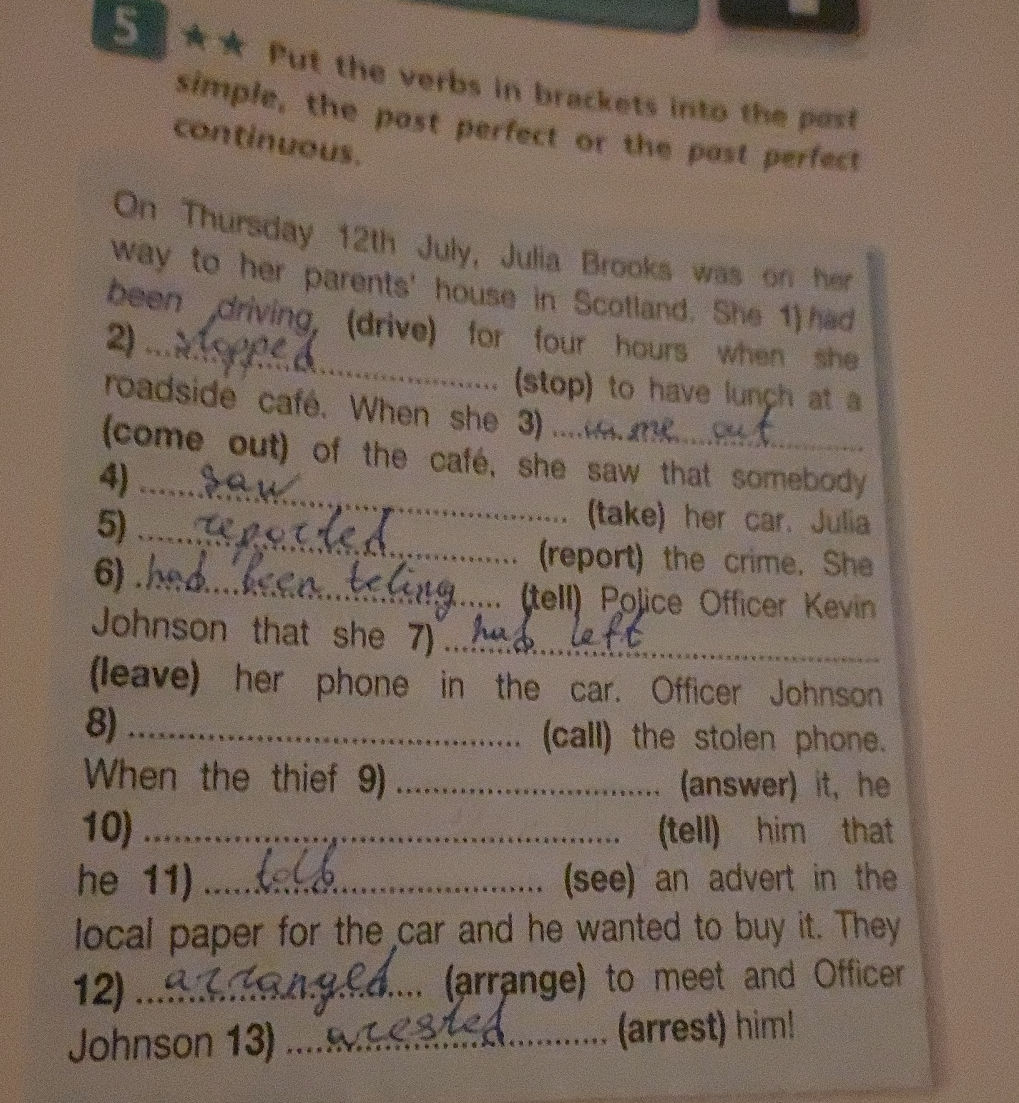 5 ★★ Put the verbs in brackets into the past
simple, the past perfect or the past perfect
continuous.
On Thursday 12th July, Julia Brooks was on her
way to her parents' house in Scotland. She 1) had
been driving (drive) for four hours when she
2) ... stopped .................... (stop) to have lunch at a
roadside café. When she 3) .... came out ..........
(come out) of the café, she saw that somebody
4) ...... saw .................... (take) her car. Julia
5) ..... reported .............. (report) the crime. She
6) . had been teling ..... (tell) Police Officer Kevin
Johnson that she 7) ... had left ....................
(leave) her phone in the car. Officer Johnson
8) ........................................ (call) the stolen phone.
When the thief 9) ............................ (answer) it, he
10) .................................................. (tell) him that
he 11) ...... told ...................... (see) an advert in the
local paper for the car and he wanted to buy it. They
12) ... arranged .... (arrange) to meet and Officer
Johnson 13) .... arested ........... (arrest) him!